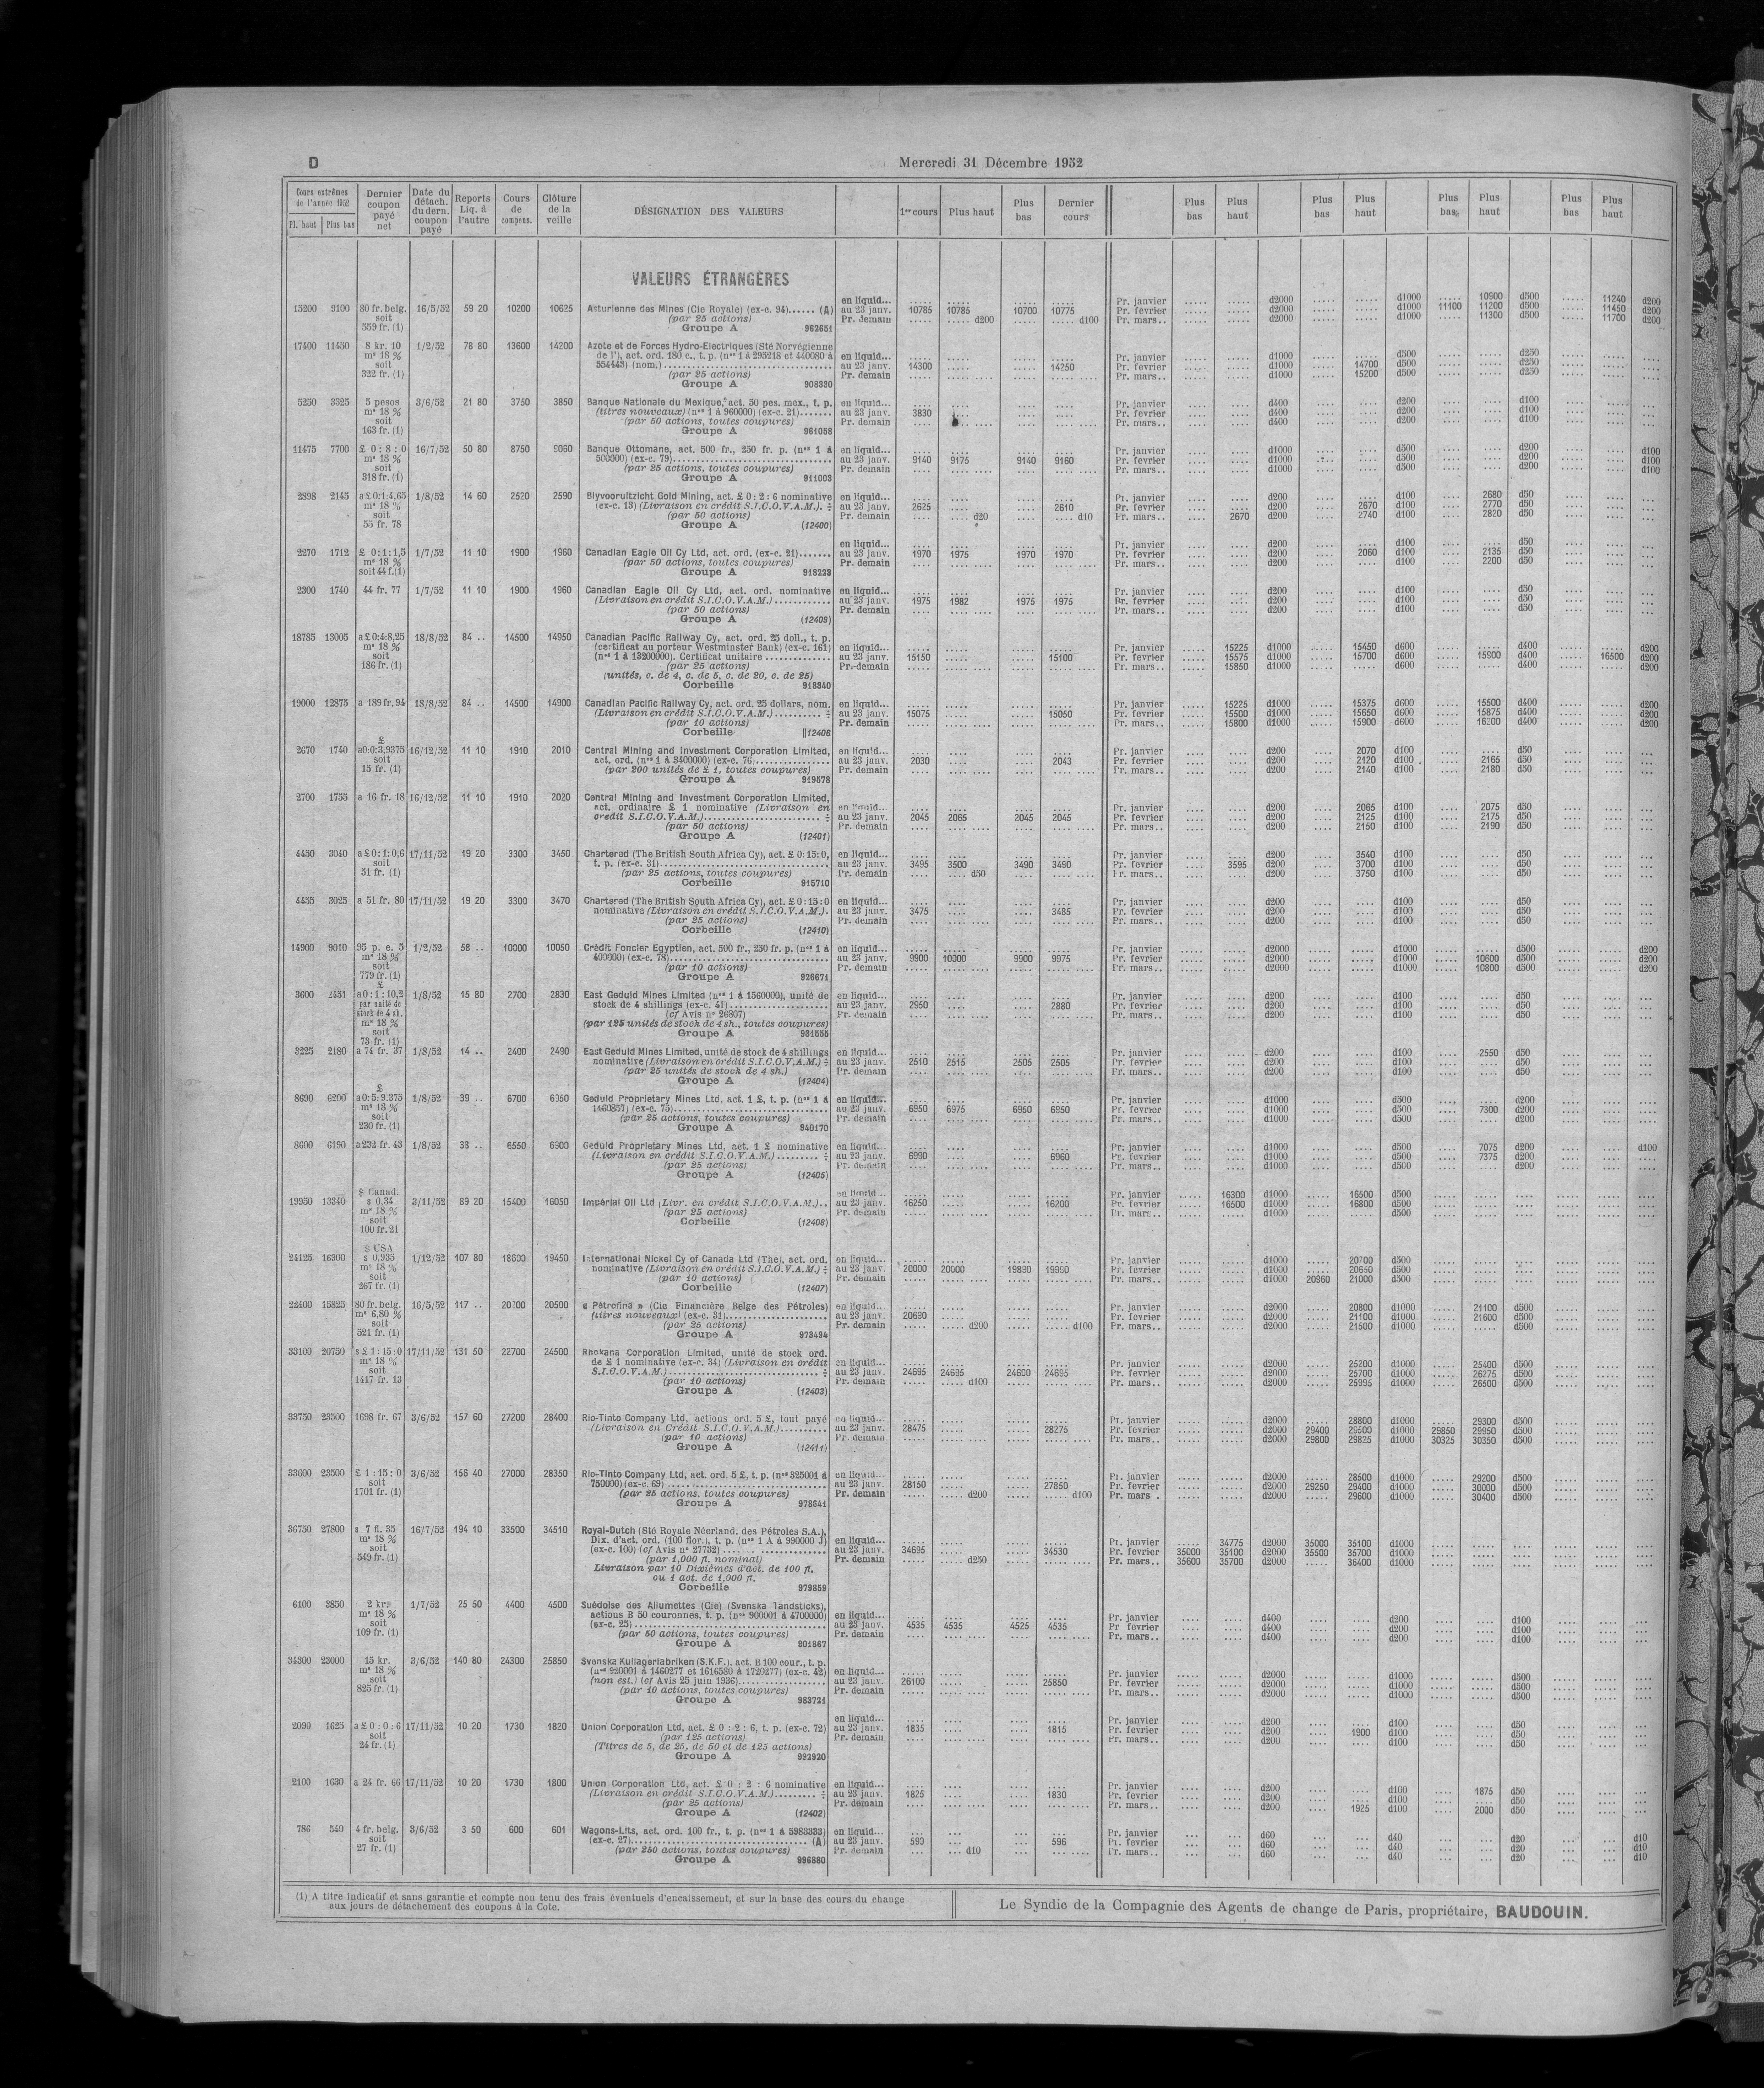 D
Mercredi 31 Décembre 1952
Cours extrêmes de l'année 1952 Pl. haut Plus bas
Dernier coupon payé net
Date du détach. du dern. coupon payé
Reports Liq. à l'autre
Cours de compens.
Clôture de la veille
DÉSIGNATION DES VALEURS
1er cours Plus haut Plus bas Dernier cours
Plus bas Plus haut Plus bas Plus haut Plus bas Plus haut Plus bas Plus haut
VALEURS ÉTRANGÈRES
en liquid... ..... ..... ..... ..... Pr. janvier ..... ..... d2000 ..... ..... d1000 ..... 10900 d500 ..... 11240 d200
15200 9100 80 fr. belg. 16/5/52 59 20 10200 10625 Asturienne des Mines (Cie Royale) (ex-c. 94)...... (A) au 23 janv. 10785 10785 10700 10775 Pr. fevrier ..... ..... d2000 ..... ..... d1000 11100 11200 d500 ..... 11450 d200
soit (par 25 actions) Pr. demain ..... ..... d200 ..... d100 Pr. mars.. ..... ..... d2000 ..... ..... d1000 ..... 11300 d500 ..... 11700 d200
559 fr. (1) Groupe A 962651
17400 11450 8 kr. 10 1/2/52 78 80 13600 14200 Azote et de Forces Hydro-Electriques (Sté Norvégienne
m° 18 % de l'), act. ord. 180 c., t. p. (nos 1 à 295218 et 440080 à en liquid... Pr. janvier d1000 d500 d250
soit 554443) (nom.) au 23 janv. 14300 14250 Pr. fevrier d1000 14700 d500 d250
322 fr. (1) (par 25 actions) Pr. demain Pr. mars.. d1000 15200 d500 d250
Groupe A 908330
5250 3325 5 pesos 3/6/52 21 80 3750 3850 Banque Nationale du Mexique, act. 50 pes. mex., t. p. en liquid... Pr. janvier d400 d200 d100
m° 18 % (titres nouveaux) (nos 1 à 960000) (ex-c. 21)....... au 23 janv. 3830 Pr. fevrier d400 d200 d100
soit (par 50 actions, toutes coupures) Pr. demain Pr. mars.. d400 d200 d100
163 fr. (1) Groupe A 961058
11475 7700 £ 0 : 8 : 0 16/7/52 50 80 8750 9060 Banque Ottomane, act. 500 fr., 250 fr. p. (nos 1 à en liquid... Pr. janvier d1000 d500 d200 d100
m° 18 % 500000) (ex-c. 79) au 23 janv. 9140 9175 9140 9160 Pr. fevrier d1000 d500 d200 d100
soit (par 25 actions, toutes coupures) Pr. demain Pr. mars.. d1000 d500 d200 d100
318 fr. (1) Groupe A 911003
2898 2145 a £ 0:1:4,65 1/8/52 14 60 2520 2590 Blyvooruitzicht Gold Mining, act. £ 0 : 2 : 6 nominative en liquid... Pr. janvier d200 d100 2680 d50
m° 18 % (ex-c. 13) (Livraison en crédit S.I.C.O.V.A.M.). ÷ au 23 janv. 2625 2610 Pr. fevrier d200 2670 d100 2770 d50
soit (par 50 actions) Pr. demain d20 d10 Pr. mars.. 2670 d200 2740 d100 2820 d50
55 fr. 78 Groupe A (12400)
en liquid... Pr. janvier d200 d100 d50
2270 1712 £ 0:1:1,5 1/7/52 11 10 1900 1960 Canadian Eagle Oil Cy Ltd, act. ord. (ex-c. 21)....... au 23 janv. 1970 1975 1970 1970 Pr. fevrier d200 2060 d100 2135 d50
m° 18 % (par 50 actions, toutes coupures) Pr. demain Pr. mars.. d200 d100 2200 d50
soit 44 f.(1) Groupe A 918223
2300 1740 44 fr. 77 1/7/52 11 10 1900 1960 Canadian Eagle Oil Cy Ltd, act. ord. nominative en liquid... Pr. janvier d200 d100 d50
(Livraison en crédit S.I.C.O.V.A.M.) au 23 janv. 1975 1982 1975 1975 Pr. fevrier d200 d100 d50
(par 50 actions) Pr. demain Pr. mars.. d200 d100 d50
Groupe A (12409)
18785 13005 a £ 0:4:8,25 18/8/52 84 .. 14500 14950 Canadian Pacific Railway Cy, act. ord. 25 doll., t. p.
m° 18 % (certificat au porteur Westminster Bank) (ex-c. 161) en liquid... Pr. janvier 15225 d1000 15450 d600 d400 d200
soit (nos 1 à 13200000). Certificat unitaire au 23 janv. 15150 15100 Pr. fevrier 15575 d1000 15700 d600 15900 d400 16500 d200
186 fr. (1) (par 25 actions) Pr. demain Pr. mars.. 15850 d1000 d600 d400 d200
(unités, c. de 4, c. de 5, c. de 20, c. de 25)
Corbeille 918340
19000 12875 a 189 fr. 94 18/8/52 84 .. 14500 14900 Canadian Pacific Railway Cy, act. ord. 25 dollars, nom. en liquid... Pr. janvier 15225 d1000 15375 d600 15500 d400 d200
(Livraison en crédit S.I.C.O.V.A.M.) ÷ au 23 janv. 15075 15050 Pr. fevrier 15500 d1000 15650 d600 15875 d400 d200
(par 10 actions) Pr. demain Pr. mars.. 15800 d1000 15900 d600 d400 d200
Corbeille 12406
£
2670 1740 a0:0:3,9375 16/12/52 11 10 1910 2010 Central Mining and Investment Corporation Limited, en liquid... Pr. janvier d200 2070 d100 d50
soit act. ord. (nos 1 à 3400000) (ex-c. 76) au 23 janv. 2030 2043 Pr. fevrier d200 2120 d100 2165 d50
15 fr. (1) (par 200 unités de £ 1, toutes coupures) Pr. demain Pr. mars.. d200 2140 d100 2180 d50
Groupe A 919578
2700 1755 a 16 fr. 18 16/12/52 11 10 1910 2020 Central Mining and Investment Corporation Limited,
act. ordinaire £ 1 nominative (Livraison en en liquid... Pr. janvier d200 2065 d100 2075 d50
crédit S.I.C.O.V.A.M.) ÷ au 23 janv. 2045 2065 2045 2045 Pr. fevrier d200 2125 d100 2175 d50
(par 50 actions) Pr. demain Pr. mars.. d200 2150 d100 2190 d50
Groupe A (12401)
4450 3040 a £ 0:1:0,6 17/11/52 19 20 3300 3450 Chartered (The British South Africa Cy), act. £ 0:15:0, en liquid... Pr. janvier d200 3540 d100 d50
soit t. p. (ex-c. 31) au 23 janv. 3495 3500 3490 3490 Pr. fevrier 3595 d200 3700 d100 d50
51 fr. (1) (par 25 actions, toutes coupures) Pr. demain d50 Pr. mars.. d200 3750 d100 d50
Corbeille 915710
4455 3025 a 51 fr. 80 17/11/52 19 20 3300 3470 Chartered (The British South Africa Cy), act. £ 0:15:0 en liquid... Pr. janvier d200 d100 d50
nominative (Livraison en crédit S.I.C.O.V.A.M.). au 23 janv. 3475 3485 Pr. fevrier d200 d100 d50
(par 25 actions) Pr. demain Pr. mars.. d200 d100 d50
Corbeille (12410)
14900 9010 95 p. e. 5 1/2/52 58 .. 10000 10050 Crédit Foncier Egyptien, act. 500 fr., 250 fr. p. (nos 1 à en liquid... Pr. janvier d2000 d1000 d500 d200
m° 18 % 400000) (ex-c. 78) au 23 janv. 9900 10000 9900 9975 Pr. fevrier d2000 d1000 10600 d500 d200
soit (par 10 actions) Pr. demain Pr. mars.. d2000 d1000 10800 d500 d200
779 fr. (1) Groupe A 926671
£
3600 2451 a0:1:10,2 1/8/52 15 80 2700 2830 East Geduld Mines Limited (nos 1 à 1560000), unité de en liquid... Pr. janvier d200 d100 d50
par unité de stock de 4 shillings (ex-c. 41) au 23 janv. 2950 2880 Pr. fevrier d200 d100 d50
stock de 4 sh. (cf Avis n° 26807) Pr. demain Pr. mars.. d200 d100 d50
m° 18 % (par 125 unités de stock de 4 sh., toutes coupures)
soit Groupe A 931555
73 fr. (1)
3225 2180 a 74 fr. 37 1/8/52 14 .. 2400 2490 East Geduld Mines Limited, unité de stock de 4 shillings en liquid... Pr. janvier d200 d100 2550 d50
nominative (Livraison en crédit S.I.C.O.V.A.M.) ÷ au 23 janv. 2510 2515 2505 2505 Pr. fevrier d200 d100 d50
(par 25 unités de stock de 4 sh.) Pr. demain Pr. mars.. d200 d100 d50
Groupe A (12404)
£
8690 6200 a0:5:9.375 1/8/52 39 .. 6700 6950 Geduld Proprietary Mines Ltd, act. 1 £, t. p. (nos 1 à en liquid... Pr. janvier d1000 d500 d200
m° 18 % 1460857) (ex-c. 75) au 23 janv. 6950 6975 6950 6950 Pr. fevrier d1000 d500 7300 d200
soit (par 25 actions, toutes coupures) Pr. demain Pr. mars.. d1000 d500 d200
230 fr. (1) Groupe A 940170
8600 6190 a 232 fr. 43 1/8/52 38 .. 6550 6900 Geduld Proprietary Mines Ltd, act. 1 £ nominative en liquid... Pr. janvier d1000 d500 7075 d200 d100
(Livraison en crédit S.I.C.O.V.A.M.) ÷ au 23 janv. 6990 6960 Pr. fevrier d1000 d500 7375 d200
(par 25 actions) Pr. demain Pr. mars.. d1000 d500 d200
Groupe A (12405)
$ Canad. en liquid... Pr. janvier 16300 d1000 16500 d500
19950 13340 s 0,34 3/11/52 89 20 15400 16050 Impérial Oil Ltd (Livr. en crédit S.I.C.O.V.A.M.).. au 23 janv. 16250 16200 Pr. fevrier 16500 d1000 16800 d500
m° 18 % (par 25 actions) Pr. demain Pr. mars.. d1000 d500
soit Corbeille (12408)
100 fr. 21
$ USA
24125 16300 s 0,935 1/12/52 107 80 18600 19450 International Nickel Cy of Canada Ltd (The), act. ord. en liquid... Pr. janvier d1000 20700 d500
m° 18 % nominative (Livraison en crédit S.I.C.O.V.A.M.) ÷ au 23 janv. 20000 20000 19890 19990 Pr. fevrier d1000 20650 d500
soit (par 10 actions) Pr. demain Pr. mars.. d1000 20960 21000 d500
267 fr. (1) Corbeille (12407)
22400 15825 80 fr. belg. 16/5/52 117 .. 20500 « Pétrofina » (Cie Financière Belge des Pétroles) en liquid... Pr. janvier d2000 20800 d1000 21100 d500
m° 6,80 % (titres nouveaux) (ex-c. 31) au 23 janv. 20690 Pr. fevrier d2000 21100 d1000 21600 d500
soit (par 25 actions) Pr. demain d200 d100 Pr. mars.. d2000 21500 d1000 d500
521 fr. (1) Groupe A 973494
33100 20750 s £ 1:15:0 17/11/52 131 50 22700 24500 Rhokana Corporation Limited, unité de stock ord.
m° 18 % de £ 1 nominative (ex-c. 34) (Livraison en crédit en liquid... Pr. janvier d2000 25200 d1000 25400 d500
soit S.I.C.O.V.A.M.) ÷ au 23 janv. 24695 24695 24600 24695 Pr. fevrier d2000 25700 d1000 26275 d500
1417 fr. 13 (par 10 actions) Pr. demain d100 Pr. mars.. d2000 25995 d1000 26500 d500
Groupe A (12403)
33750 23500 1698 fr. 67 3/6/52 157 60 27200 28400 Rio-Tinto Company Ltd, actions ord. 5 £, tout payé en liquid... Pr. janvier d2000 28800 d1000 29300 d500
(Livraison en Crédit S.I.C.O.V.A.M.) au 23 janv. 28475 28275 Pr. fevrier d2000 29400 29500 d1000 29850 29950 d500
(par 10 actions) Pr. demain Pr. mars.. d2000 29800 29825 d1000 30325 30350 d500
Groupe A (12411)
33600 23500 £ 1 : 15 : 0 3/6/52 156 40 27000 28350 Rio-Tinto Company Ltd, act. ord. 5 £, t. p. (nos 325001 à en liquid... Pr. janvier d2000 28500 d1000 29200 d500
soit 750000) (ex-c. 69) au 23 janv. 28150 27850 Pr. fevrier d2000 29250 29400 d1000 30000 d500
1701 fr. (1) (par 25 actions, toutes coupures) Pr. demain d200 d100 Pr. mars . d2000 29600 d1000 30400 d500
Groupe A 978641
36750 27800 s 7 fl. 35 16/7/52 194 10 33500 34510 Royal-Dutch (Sté Royale Néerland. des Pétroles S.A.),
m° 18 % Dix. d'act. ord. (100 flor.), t. p. (nos 1 A à 990000 J) en liquid... Pr. janvier 34775 d2000 35000 35100 d1000
soit (ex-c. 100) (cf Avis n° 27732) au 23 janv. 34695 34530 Pr. février 35000 35100 d2000 35500 35700 d1000
549 fr. (1) (par 1,000 fl. nominal) Pr. demain d250 Pr. mars.. 35600 35700 d2000 36400 d1000
Livraison par 10 Dixièmes d'act. de 100 fl.
ou 1 act. de 1,000 fl.
Corbeille 979859
6100 3850 2 krs 1/7/52 25 50 4400 4500 Suédoise des Allumettes (Cie) (Svenska Tandsticks),
m° 18 % actions B 50 couronnes, t. p. (nos 900001 à 4700000) en liquid... Pr. janvier d400 d200 d100
soit (ex-c. 25) au 23 janv. 4535 4535 4525 4535 Pr fevrier d400 d200 d100
109 fr. (1) (par 50 actions, toutes coupures) Pr. demain Pr. mars.. d400 d200 d100
Groupe A 901867
34300 23000 15 kr. 3/6/52 140 80 24300 25850 Svenska Kullagerfabriken (S.K.F.), act. B 100 cour., t. p.
m° 18 % (nos 920001 à 1460277 et 1616580 à 1720277) (ex-c. 42) en liquid... Pr. janvier d2000 d1000 d500
soit (non est.) (cf Avis 25 juin 1936) au 23 janv. 26100 25850 Pr. fevrier d2000 d1000 d500
825 fr. (1) (par 10 actions, toutes coupures) Pr. demain Pr. mars.. d2000 d1000 d500
Groupe A 983721
en liquid... Pr. janvier d200 d100 d50
2090 1625 a £ 0 : 0 : 6 17/11/52 10 20 1730 1820 Union Corporation Ltd, act. £ 0 : 2 : 6, t. p. (ex-c. 72) au 23 janv. 1835 1815 Pr. fevrier d200 1900 d100 d50
soit (par 125 actions) Pr. demain Pr. mars.. d200 d100 d50
24 fr. (1) (Titres de 5, de 25, de 50 et de 125 actions)
Groupe A 992920
2100 1630 a 24 fr. 66 17/11/52 10 20 1730 1800 Union Corporation Ltd, act. £ 0 : 2 : 6 nominative en liquid... Pr. janvier d200 d100 1875 d50
(Livraison en crédit S.I.C.O.V.A.M.) ÷ au 23 janv. 1825 1830 Pr. fevrier d200 d100 d50
(par 25 actions) Pr. demain Pr. mars.. d200 1925 d100 2000 d50
Groupe A (12402)
786 540 4 fr. belg. 3/6/52 3 50 600 601 Wagons-Lits, act. ord. 100 fr., t. p. (nos 1 à 5983333) en liquid... Pr. janvier d60 d40 d20 d10
soit (ex-c. 27) (A) au 23 janv. 593 596 Pr. fevrier d60 d40 d20 d10
27 fr. (1) (par 250 actions, toutes coupures) Pr. demain d10 Pr. mars.. d60 d40 d20 d10
Groupe A 996880
(1) A titre indicatif et sans garantie et compte non tenu des frais éventuels d'encaissement, et sur la base des cours du change
aux jours de détachement des coupons à la Cote.
Le Syndic de la Compagnie des Agents de change de Paris, propriétaire, BAUDOUIN.